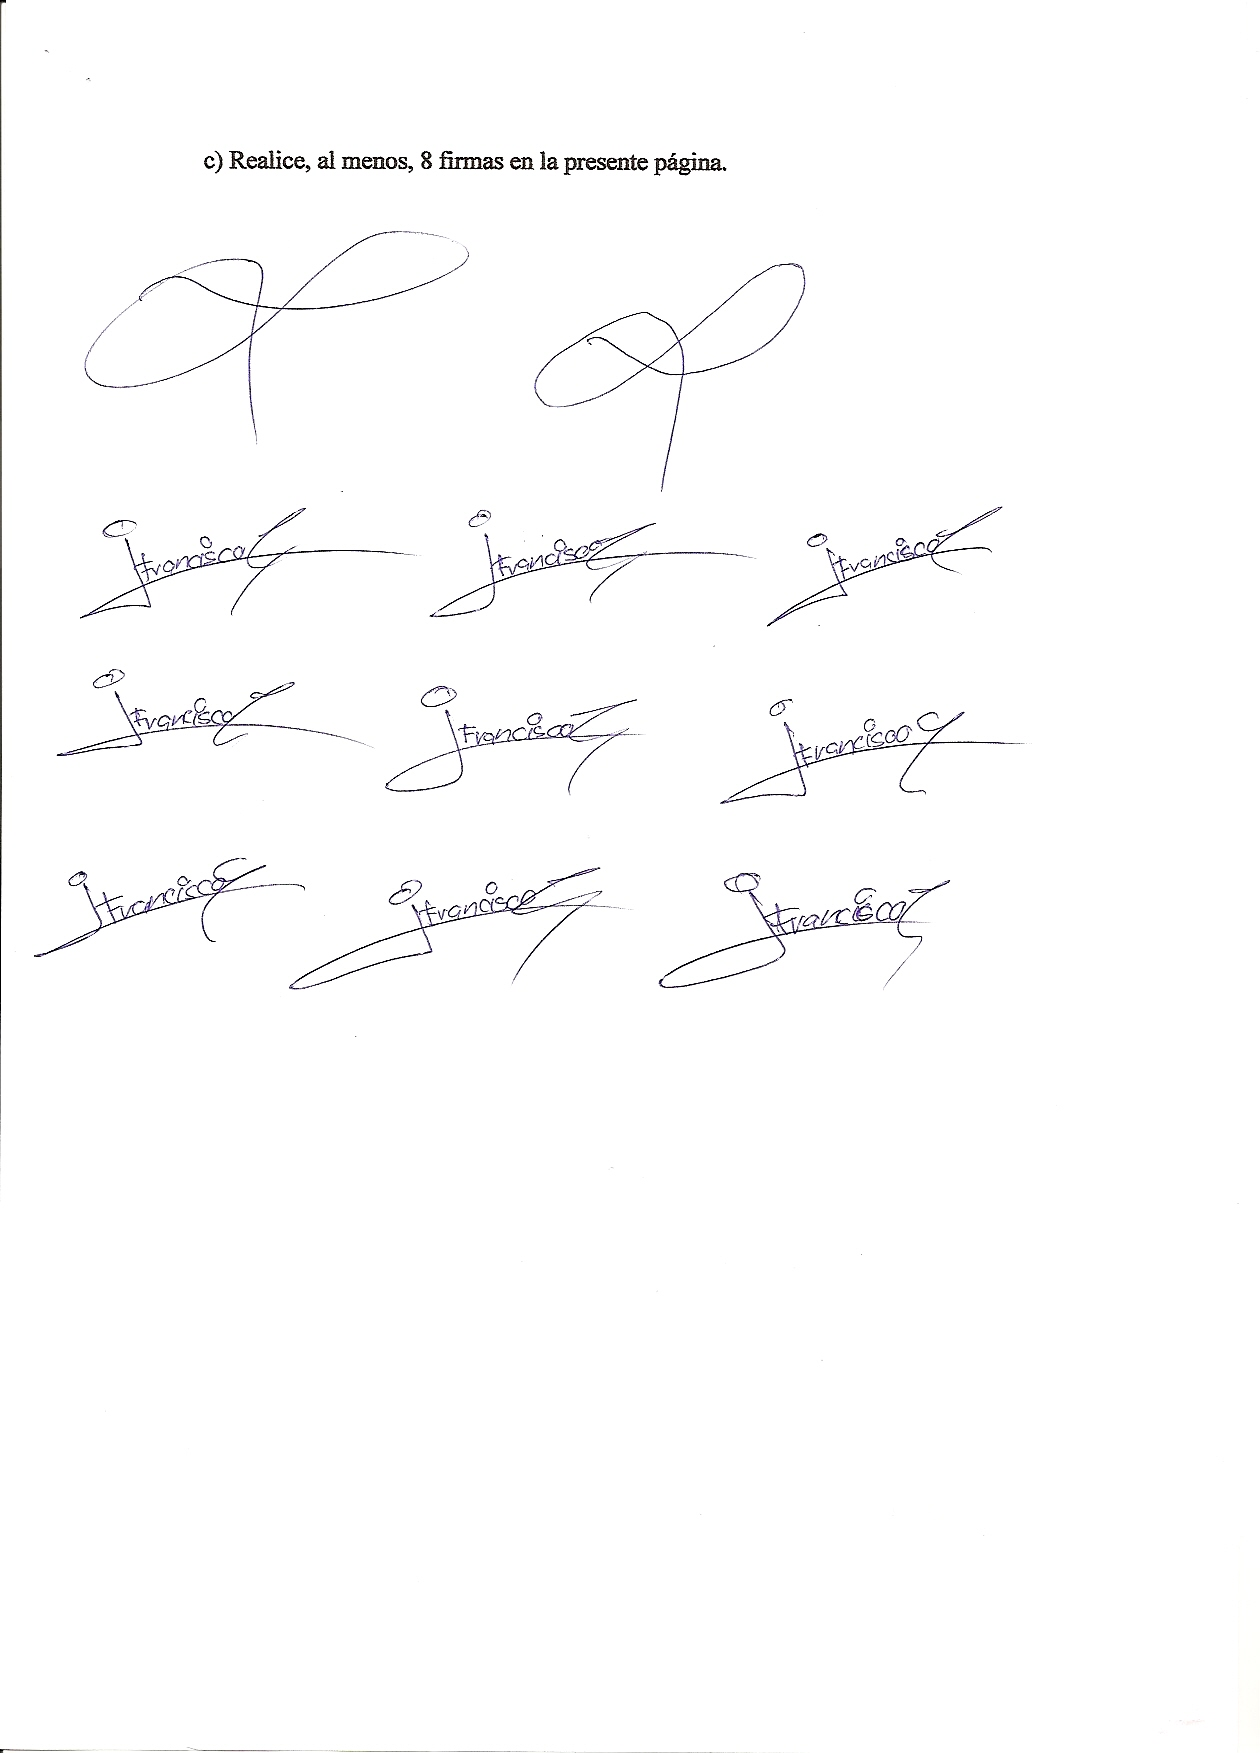 c) Realice, al menos, 8 firmas en la presente página.
jfrancisco jfrancisco jfrancisco
jfrancisco jfrancisco jfrancisco
jfrancisco jfrancisco jfrancisco